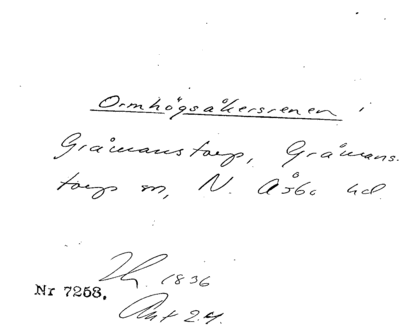 Ormhögsåkersrenen i
Gråmanstorp, Gråmans-
torp sn, N. Åsbo hd
1836
Nr 7258.
Akt 24.